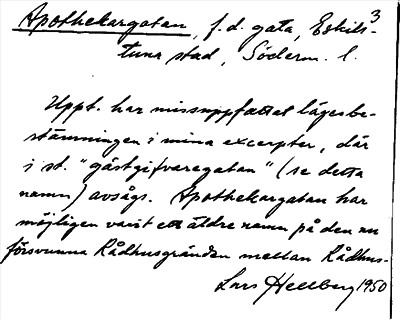 3
Apothekargatan, f.d. gata, Eskils-
tuna stad, Söderm. l.
Uppt. har missuppfattat lägesbe-
stämningen i mina excerpter, där
i st. "gästgifvaregatan" (se detta
namn) avsågs. Apothekargatan har
möjligen varit ett äldre namn på den nu
försvunna Rådhusgränden mellan Rådhus-
Lars Hellberg 1950